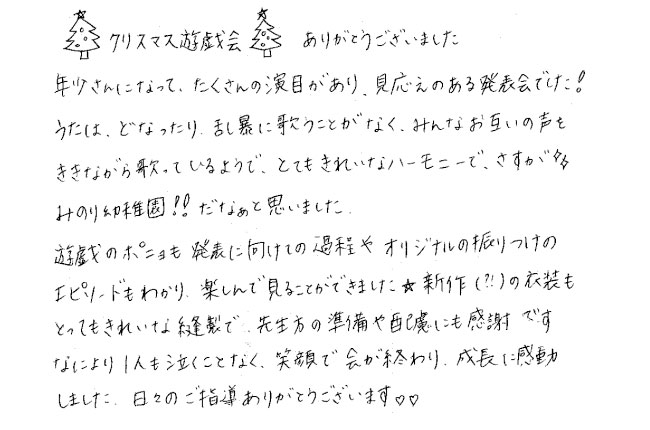 クリスマス遊戯会 ありがとうございました
年少さんになって、たくさんの演目があり、見応えのある発表会でした!
うたは、どなったり、乱暴に歌うことがなく、みんなお互いの声を
ききながら歌っているようで、とてもきれいなハーモニーで、さすが
みのり幼稚園!! だなぁと思いました。
遊戯のポニョも発表に向けての過程やオリジナルの振りつけの
エピソードもわかり、楽しんで見ることができました☆新作(?!)の衣装も
とってもきれいな縫製で、先生方の準備や配慮にも感謝です
なにより1人も泣くことなく、笑顔で会が終わり、成長に感動
しました。日々のご指導ありがとうございます♡♡